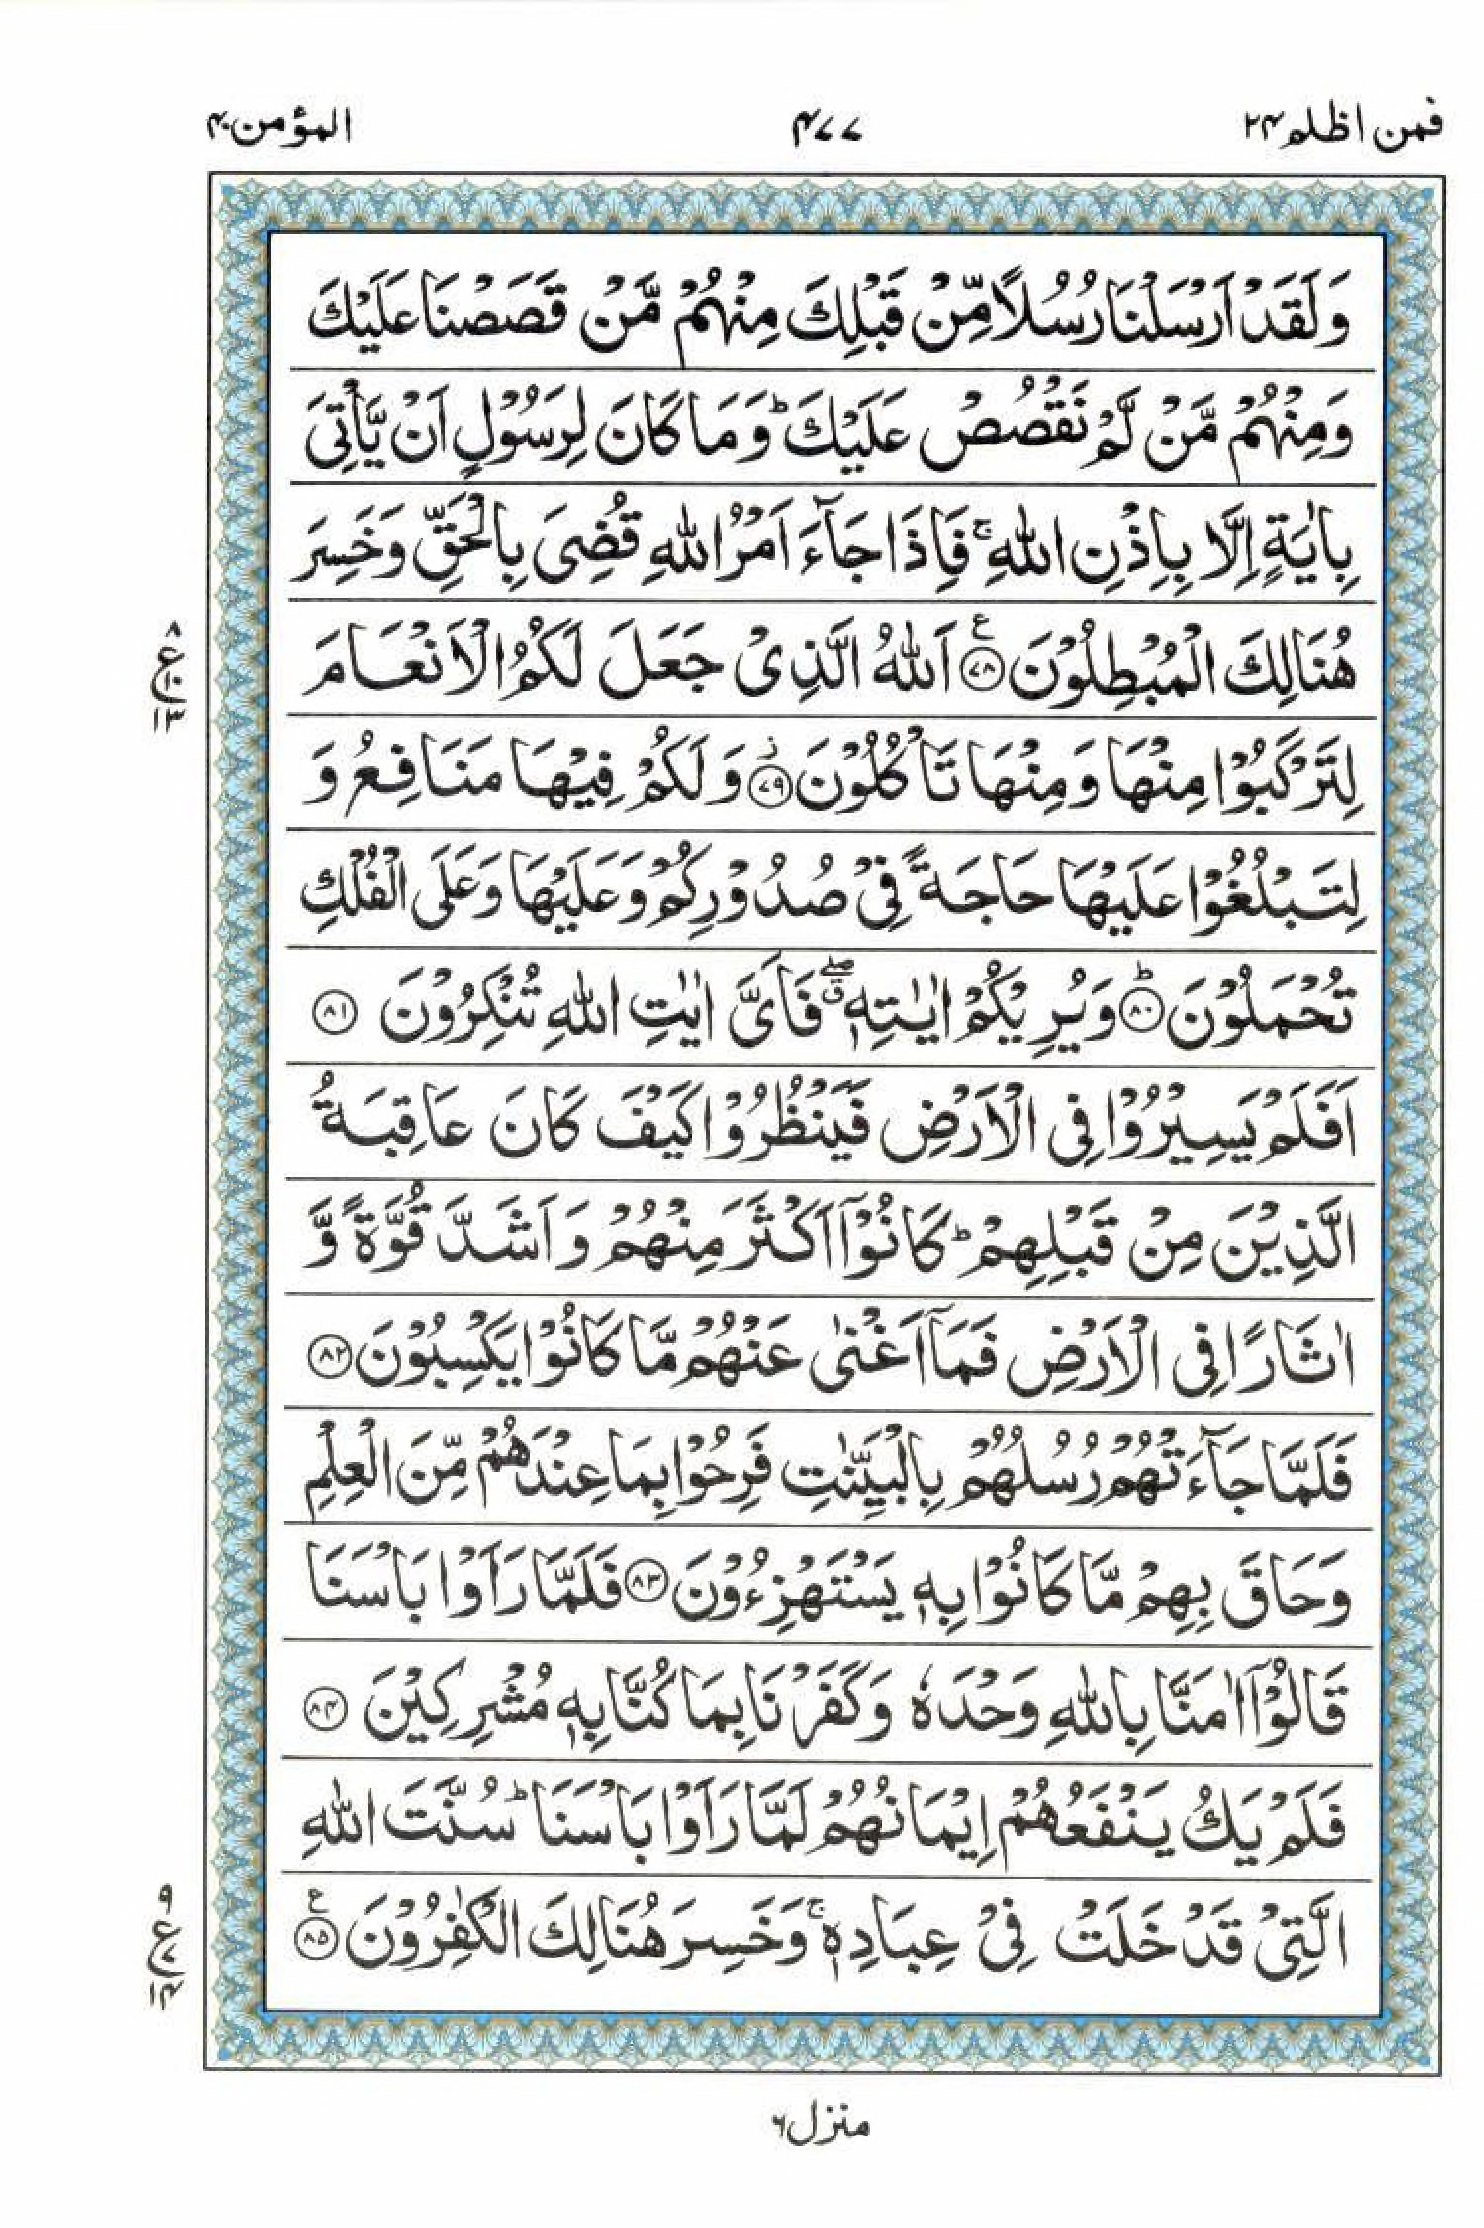 فمن اظلم ٢٤
٤٧٧
المؤمن ٤٠
وَلَقَدْ اَرْسَلْنَا رُسُلًا مِّنْ قَبْلِكَ مِنْهُمْ مَّنْ قَصَصْنَا عَلَيْكَ
وَمِنْهُمْ مَّنْ لَّمْ نَقْصُصْ عَلَيْكَ ؕ وَمَا كَانَ لِرَسُوْلٍ اَنْ يَّاْتِىَ
بِاٰيَةٍ اِلَّا بِاِذْنِ اللّٰهِ ۚ فَاِذَا جَآءَ اَمْرُ اللّٰهِ قُضِىَ بِالْحَقِّ وَخَسِرَ
هُنَالِكَ الْمُبْطِلُوْنَ ﴿٧٨﴾ ع اَللّٰهُ الَّذِىْ جَعَلَ لَكُمُ الْاَنْعَامَ
٨
ع ١٠
١٣
لِتَرْكَبُوْا مِنْهَا وَمِنْهَا تَاْكُلُوْنَ ﴿٧٩﴾ ز وَلَكُمْ فِيْهَا مَنَافِعُ وَ
لِتَبْلُغُوْا عَلَيْهَا حَاجَةً فِىْ صُدُوْرِكُمْ وَعَلَيْهَا وَعَلَى الْفُلْكِ
تُحْمَلُوْنَ ﴿٨٠﴾ ؕ وَيُرِيْكُمْ اٰيٰتِهٖ ۖ ق فَاَىَّ اٰيٰتِ اللّٰهِ تُنْكِرُوْنَ ﴿٨١﴾
اَفَلَمْ يَسِيْرُوْا فِى الْاَرْضِ فَيَنْظُرُوْا كَيْفَ كَانَ عَاقِبَةُ
الَّذِيْنَ مِنْ قَبْلِهِمْ ؕ كَانُوْٓا اَكْثَرَ مِنْهُمْ وَاَشَدَّ قُوَّةً وَّ
اٰثَارًا فِى الْاَرْضِ فَمَآ اَغْنٰى عَنْهُمْ مَّا كَانُوْا يَكْسِبُوْنَ ﴿٨٢﴾
فَلَمَّا جَآءَتْهُمْ رُسُلُهُمْ بِالْبَيِّنٰتِ فَرِحُوْا بِمَا عِنْدَهُمْ مِّنَ الْعِلْمِ
وَحَاقَ بِهِمْ مَّا كَانُوْا بِهٖ يَسْتَهْزِءُوْنَ ﴿٨٣﴾ فَلَمَّا رَاَوْا بَاْسَنَا
قَالُوْٓا اٰمَنَّا بِاللّٰهِ وَحْدَهٗ وَكَفَرْنَا بِمَا كُنَّا بِهٖ مُشْرِكِيْنَ ﴿٨٤﴾
فَلَمْ يَكُ يَنْفَعُهُمْ اِيْمَانُهُمْ لَمَّا رَاَوْا بَاْسَنَا ؕ سُنَّتَ اللّٰهِ
الَّتِىْ قَدْ خَلَتْ فِىْ عِبَادِهٖ ۚ وَخَسِرَ هُنَالِكَ الْكٰفِرُوْنَ ﴿٨٥﴾ ع
٩
ع ٧
١٤
منزل ٦